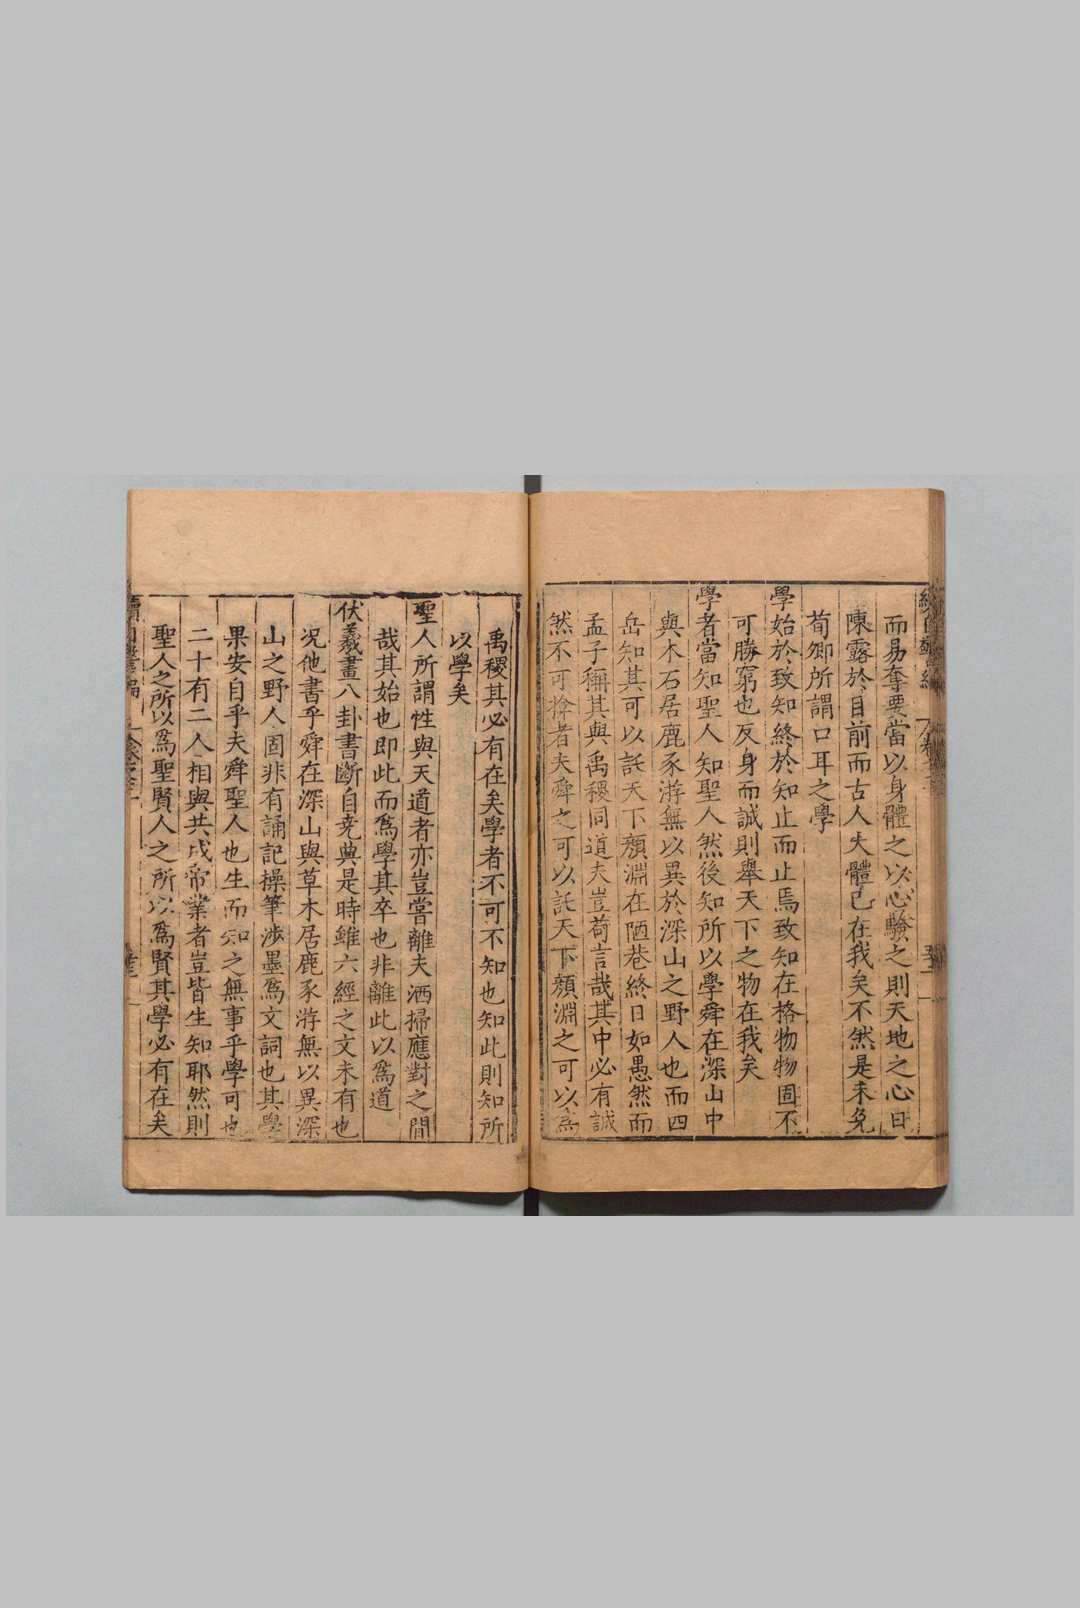 而易奪要當以身體之以心驗之則天地之心日
陳露於目前而古人大體已在我矣不然是未免
荀卿所謂口耳之學
學始於致知終於知止而止焉致知在格物物固不
可勝窮也反身而誠則舉天下之物在我矣
學者當知聖人知聖人然後知所以學舜在深山中
與木石居鹿豕游無以異於深山之野人也而四
岳知其可以託天下顏淵在陋巷終日如愚然而
孟子稱其與禹稷同道夫豈苟言哉其中必有誠
然不可揜者夫舜之可以託天下顏淵之可以為
禹稷其必有在矣學者不可不知也知此則知所
以學矣
聖人所謂性與天道者亦豈嘗離夫洒掃應對之間
哉其始也即此而爲學其卒也非離此以爲道
伏羲畫八卦書斷自堯典是時雖六經之文未有也
况他書乎舜在深山與草木居鹿豕游無以異深
山之野人固非有誦記操筆涉墨爲文詞也其學
果安自乎夫舜聖人也生而知之無事乎學可也
二十有二人相與共成帝業者豈皆生知耶然則
聖人之所以爲聖賢人之所以爲賢其學必有在矣